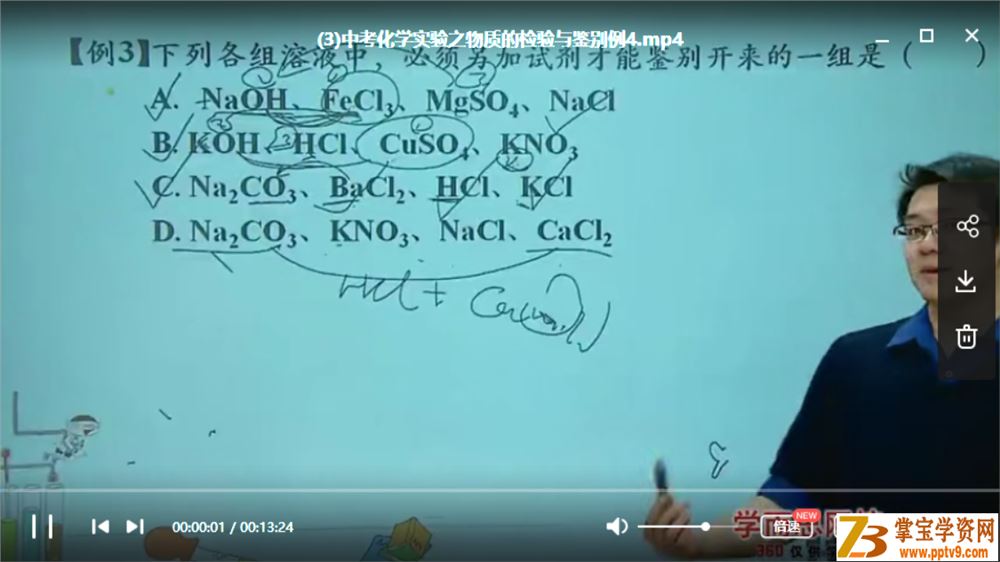 (3)中考化学实验之物质的检验与鉴别例4.mp4
【例3】下列各组溶液中，必须另加试剂才能鉴别开来的一组是（ ）
A. NaOH、FeCl₃、MgSO₄、NaCl
B. KOH、HCl、CuSO₄、KNO₃
C. Na₂CO₃、BaCl₂、HCl、KCl
D. Na₂CO₃、KNO₃、NaCl、CaCl₂
HCl +
00:00:01 / 00:13:24
倍速
NEW
学而思网校
360
掌宝学资网
www.pptv9.com